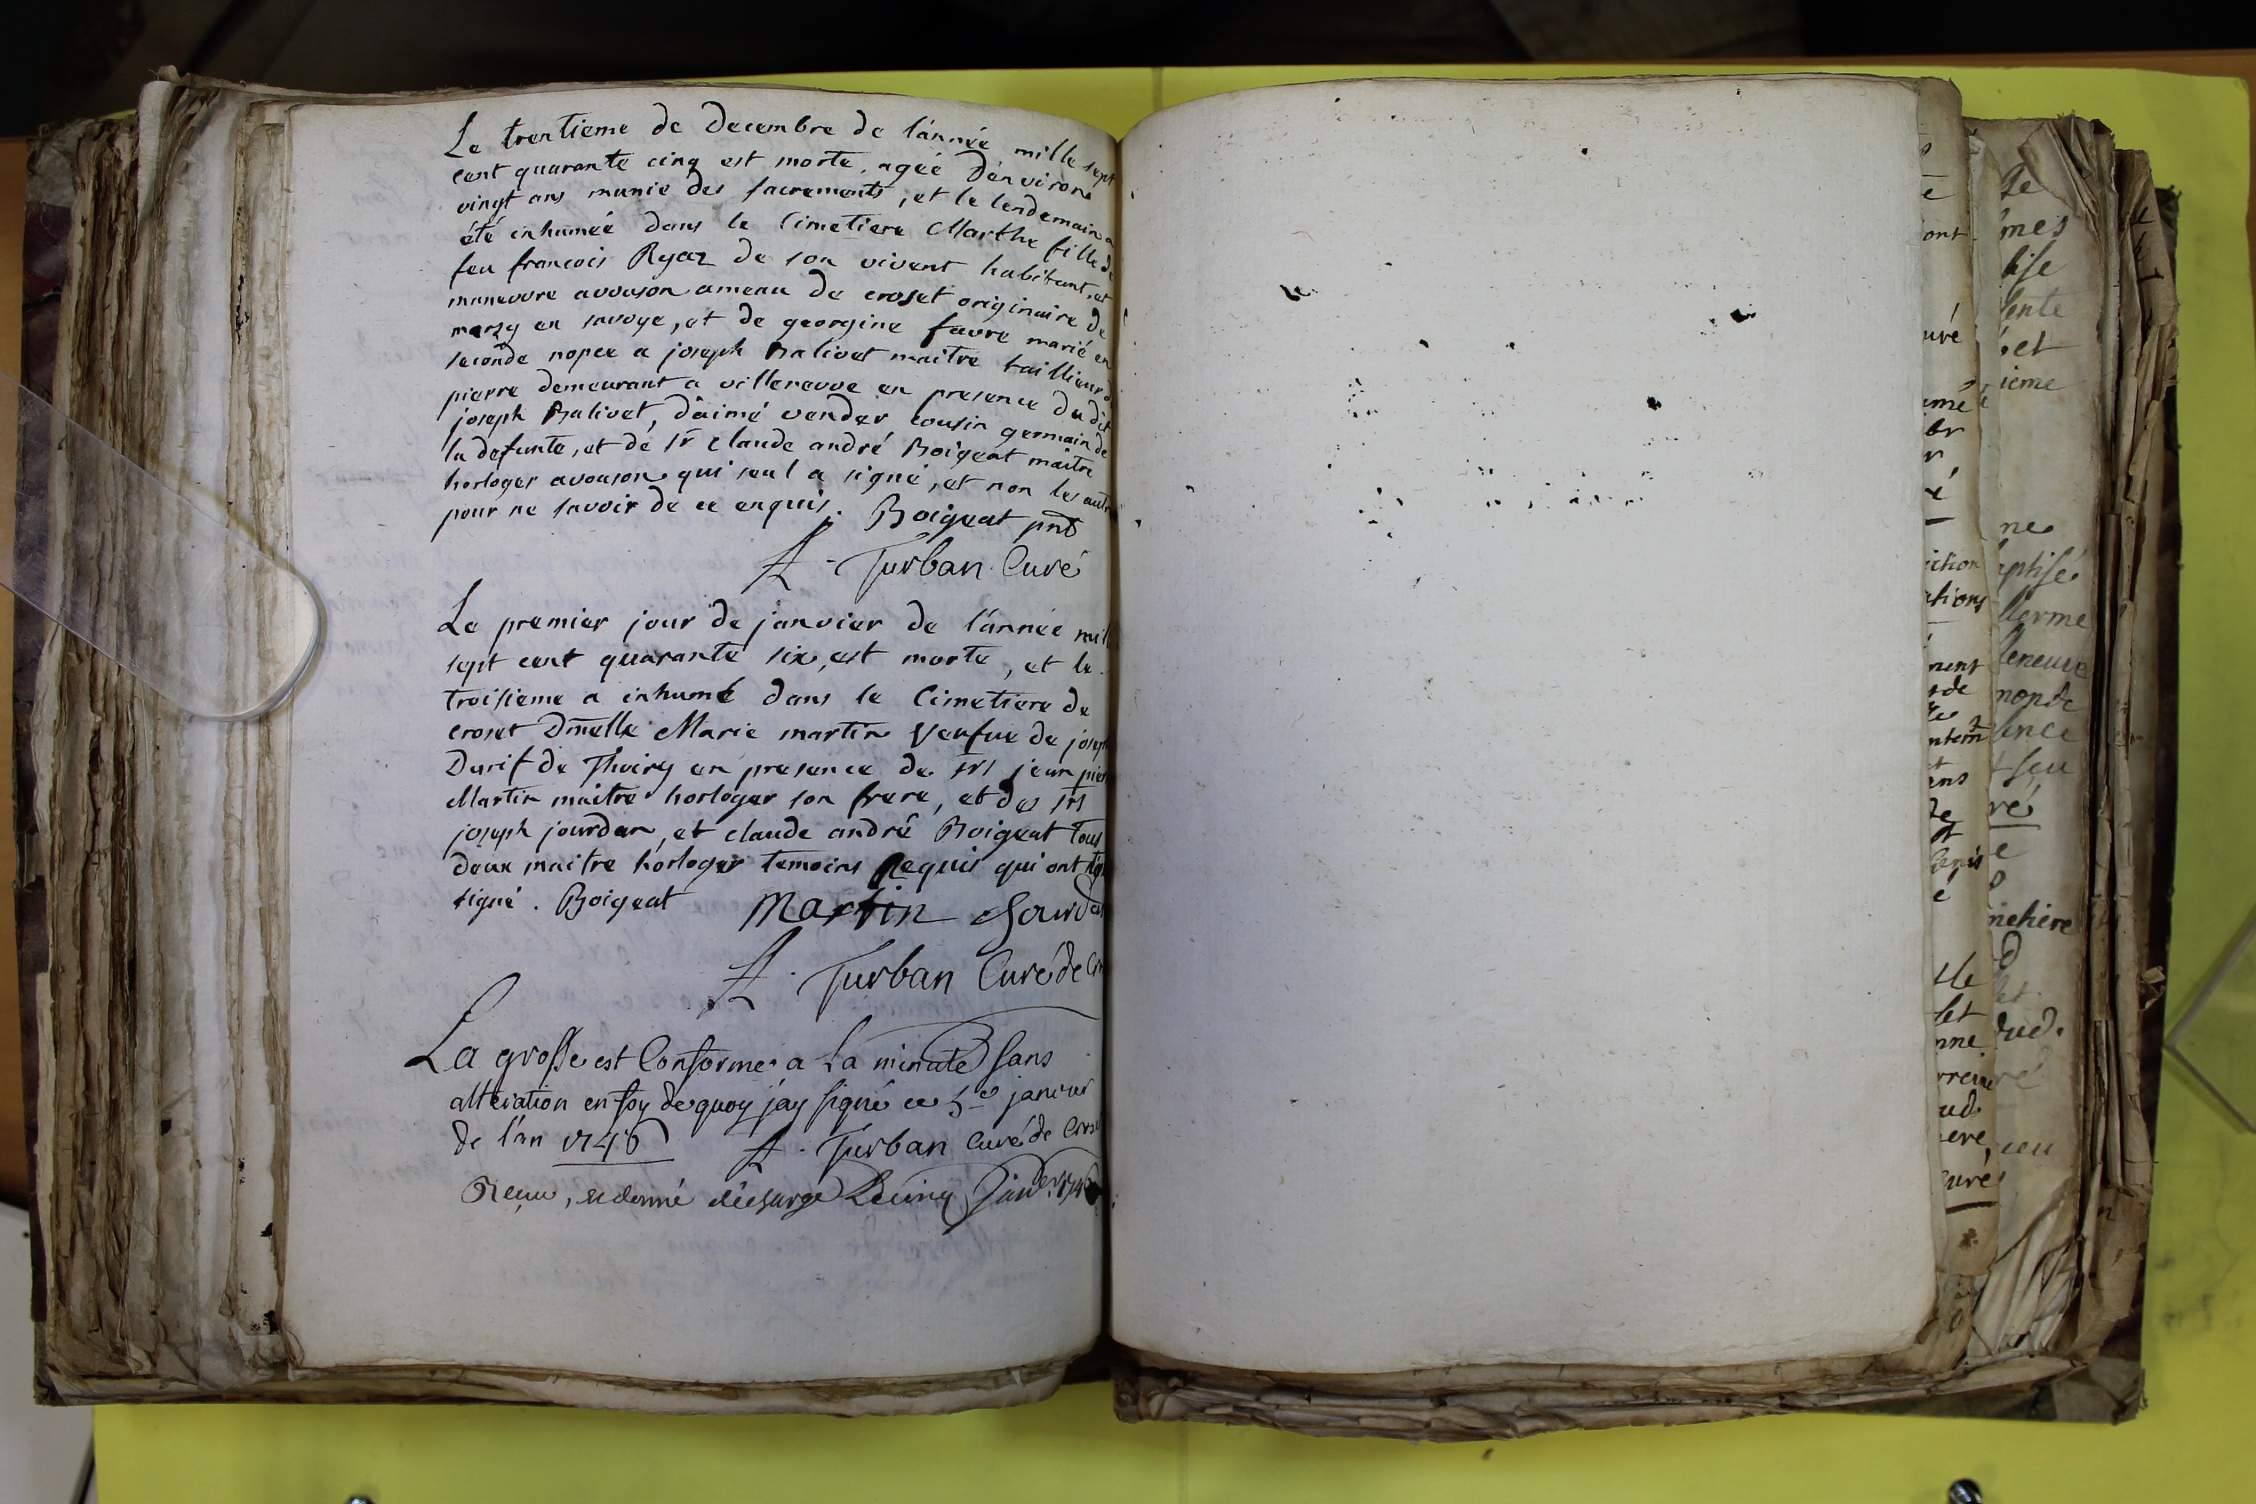 Le trentieme de Decembre de l'année mille sept
cent quarante cinq est morte, agée d'environs
vingt ans munie des sacrements, et le lendemain a
été inhumée dans le Cimetiere Marthe fille de
feu francois Ryaz de son vivent habitant, et
maneuvre avouson ameau de croset originaire de
marzy en savoye, et de georgine favre marié en
seconde nopce a joseph Balivet maitre taillieur de
pierre demeurant a villeneuve en presence du dit
joseph Balivet, d'aimé vender cousin germain de
la defunte, et de sr claude andré Boigeat maitre
horloger avouson qui seul a signé, et non les autr
pour ne savoir de ce enquis. Boigeat pnt
A. Turban Curé
Le premier jour de janvier de l'année mil
sept cent quarante six, est morte, et le
troisieme a inhumé dans le Cimetiere de
croset Dmelle Marie martin veufue de joseph
Durif de Thoiry en presence de srs jean pier
Martin maitre horloger son frere, et des srs
joseph jourdan, et claude andré Boigeat tous
deux maitre horloger temoins Requis qui ont
signé. Boigeat Martin Jourdan
A. Turban Curé de Cro
La grosse est Conforme a La minute Sans
alteration en foy de quoy j'ay signé ce 5e janvier
de l'an 1746 A. Turban Curé de Cros
Reçu, et donné décharge Le cinq Janver 1746